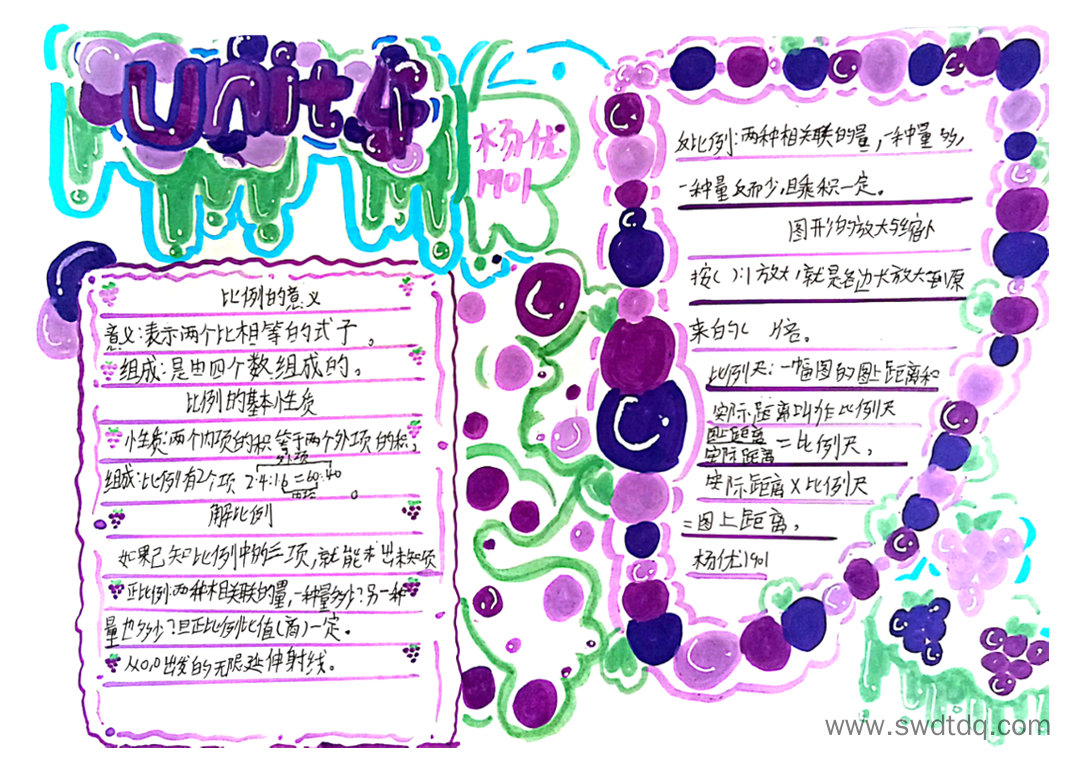 Unit 4
杨优
1901
比例的意义
意义:表示两个比相等的式子。
组成:是由四个数组成的。
比例的基本性质
性质:两个内项的积等于两个外项的积,
外项
组成:比例有2个项 2.4:1.6=60:40
内项
解比例
如果已知比例中的三项,就能求出未知项
正比例:两种相关联的量,一种量多少?另一种
量也多少?且正比例比值(商)一定。
从0,0出发的无限延伸射线。
反比例:两种相关联的量,一种量多,
一种量反而少,且乘积一定。
图形的放大与缩小
按( ):1放大,就是各边大放大到原
来的( )倍。
比例尺:一幅图的图上距离和
实际距离叫作比例尺
图上距离
实际距离 =比例尺,
实际距离×比例尺
=图上距离,
杨优1901
www.swdtdq.com